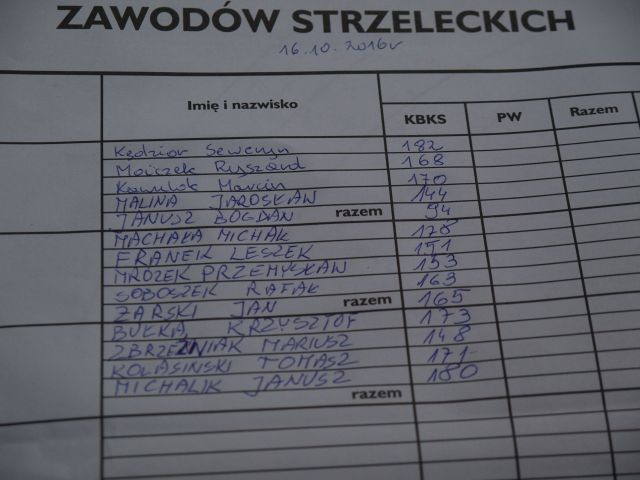 ZAWODÓW STRZELECKICH
16.10.2016r
Imię i nazwisko KBKS PW Razem
Kędzior Seweryn 182
Maiczek Ryszard 168
Kawulok Marcin 170
MALINA JAROSŁAW 144
JANUSZ BOGDAN razem 94
MACHAŁA MICHAŁ 178
FRANEK LESZEK 151
MROZEK PRZEMYSŁAW 153
SOBOSZEK RAFAŁ 163
ŻARSKI JAN razem 165
BUŁKA KRZYSZTOF 173
ZBRZEŹNIAK MARIUSZ 148
KOLASIŃSKI TOMASZ 171
MICHALIK JANUSZ 180
razem